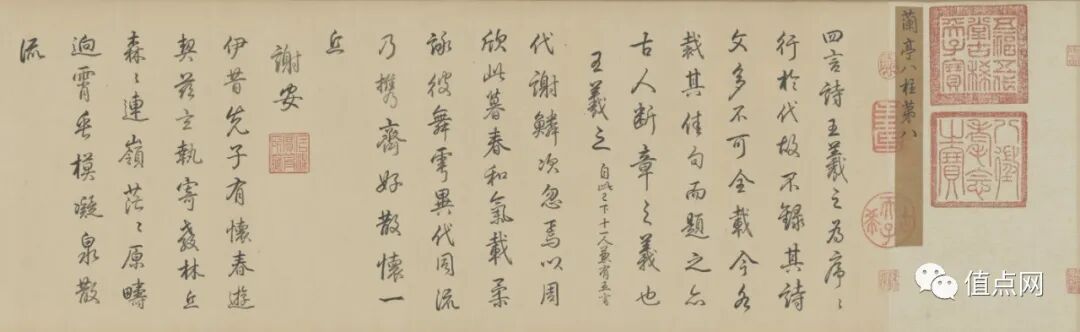 五福五代堂古稀天子寶
八徵耄念之寶
蘭亭八柱第八
四言詩王羲之為序〻
行於代故不錄其詩
文多不可全載今各
裁其佳句而題之亦
古人斷章之義也
王羲之 自此已下十一人兼有五言
代謝鱗次忽焉以周
欣此暮春和氣載柔
詠彼舞雩異代同流
乃攜齊好散懷一
丘
謝安
伊昔先子有懷春遊
契茲言執寄傲林丘
森〻連嶺茫〻原疇
逈霄垂凝泉散
流
值点网